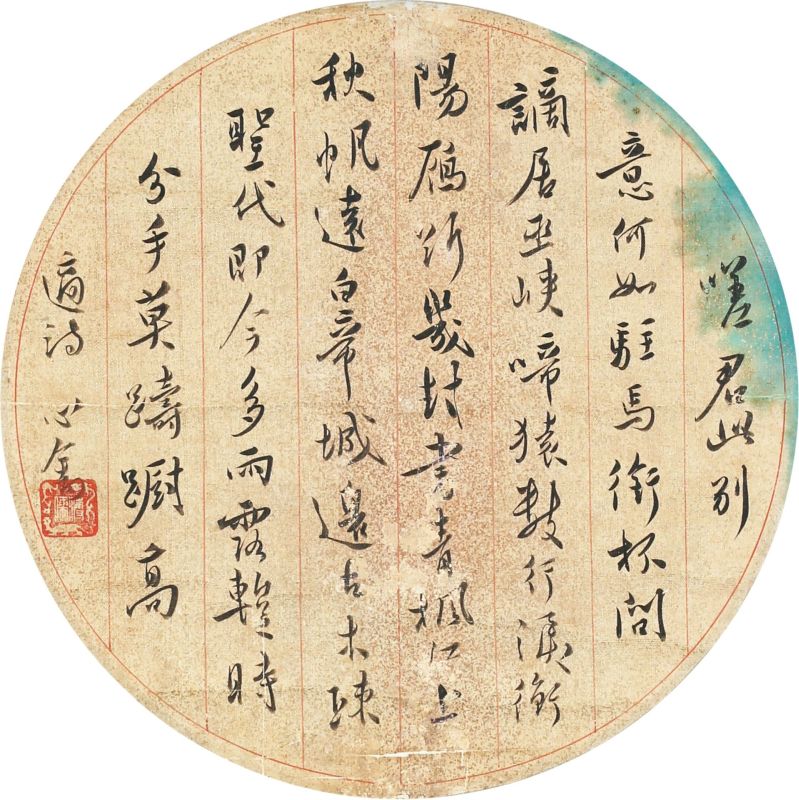 嗟君此別
意何如駐馬銜杯問
謫居巫峽啼猿數行淚衡
陽鴈断幾封書青楓江上
秋帆遠白帝城邊古木疎
聖代即今多雨露蹔時
分手莫躊躕高
適詩 心畬